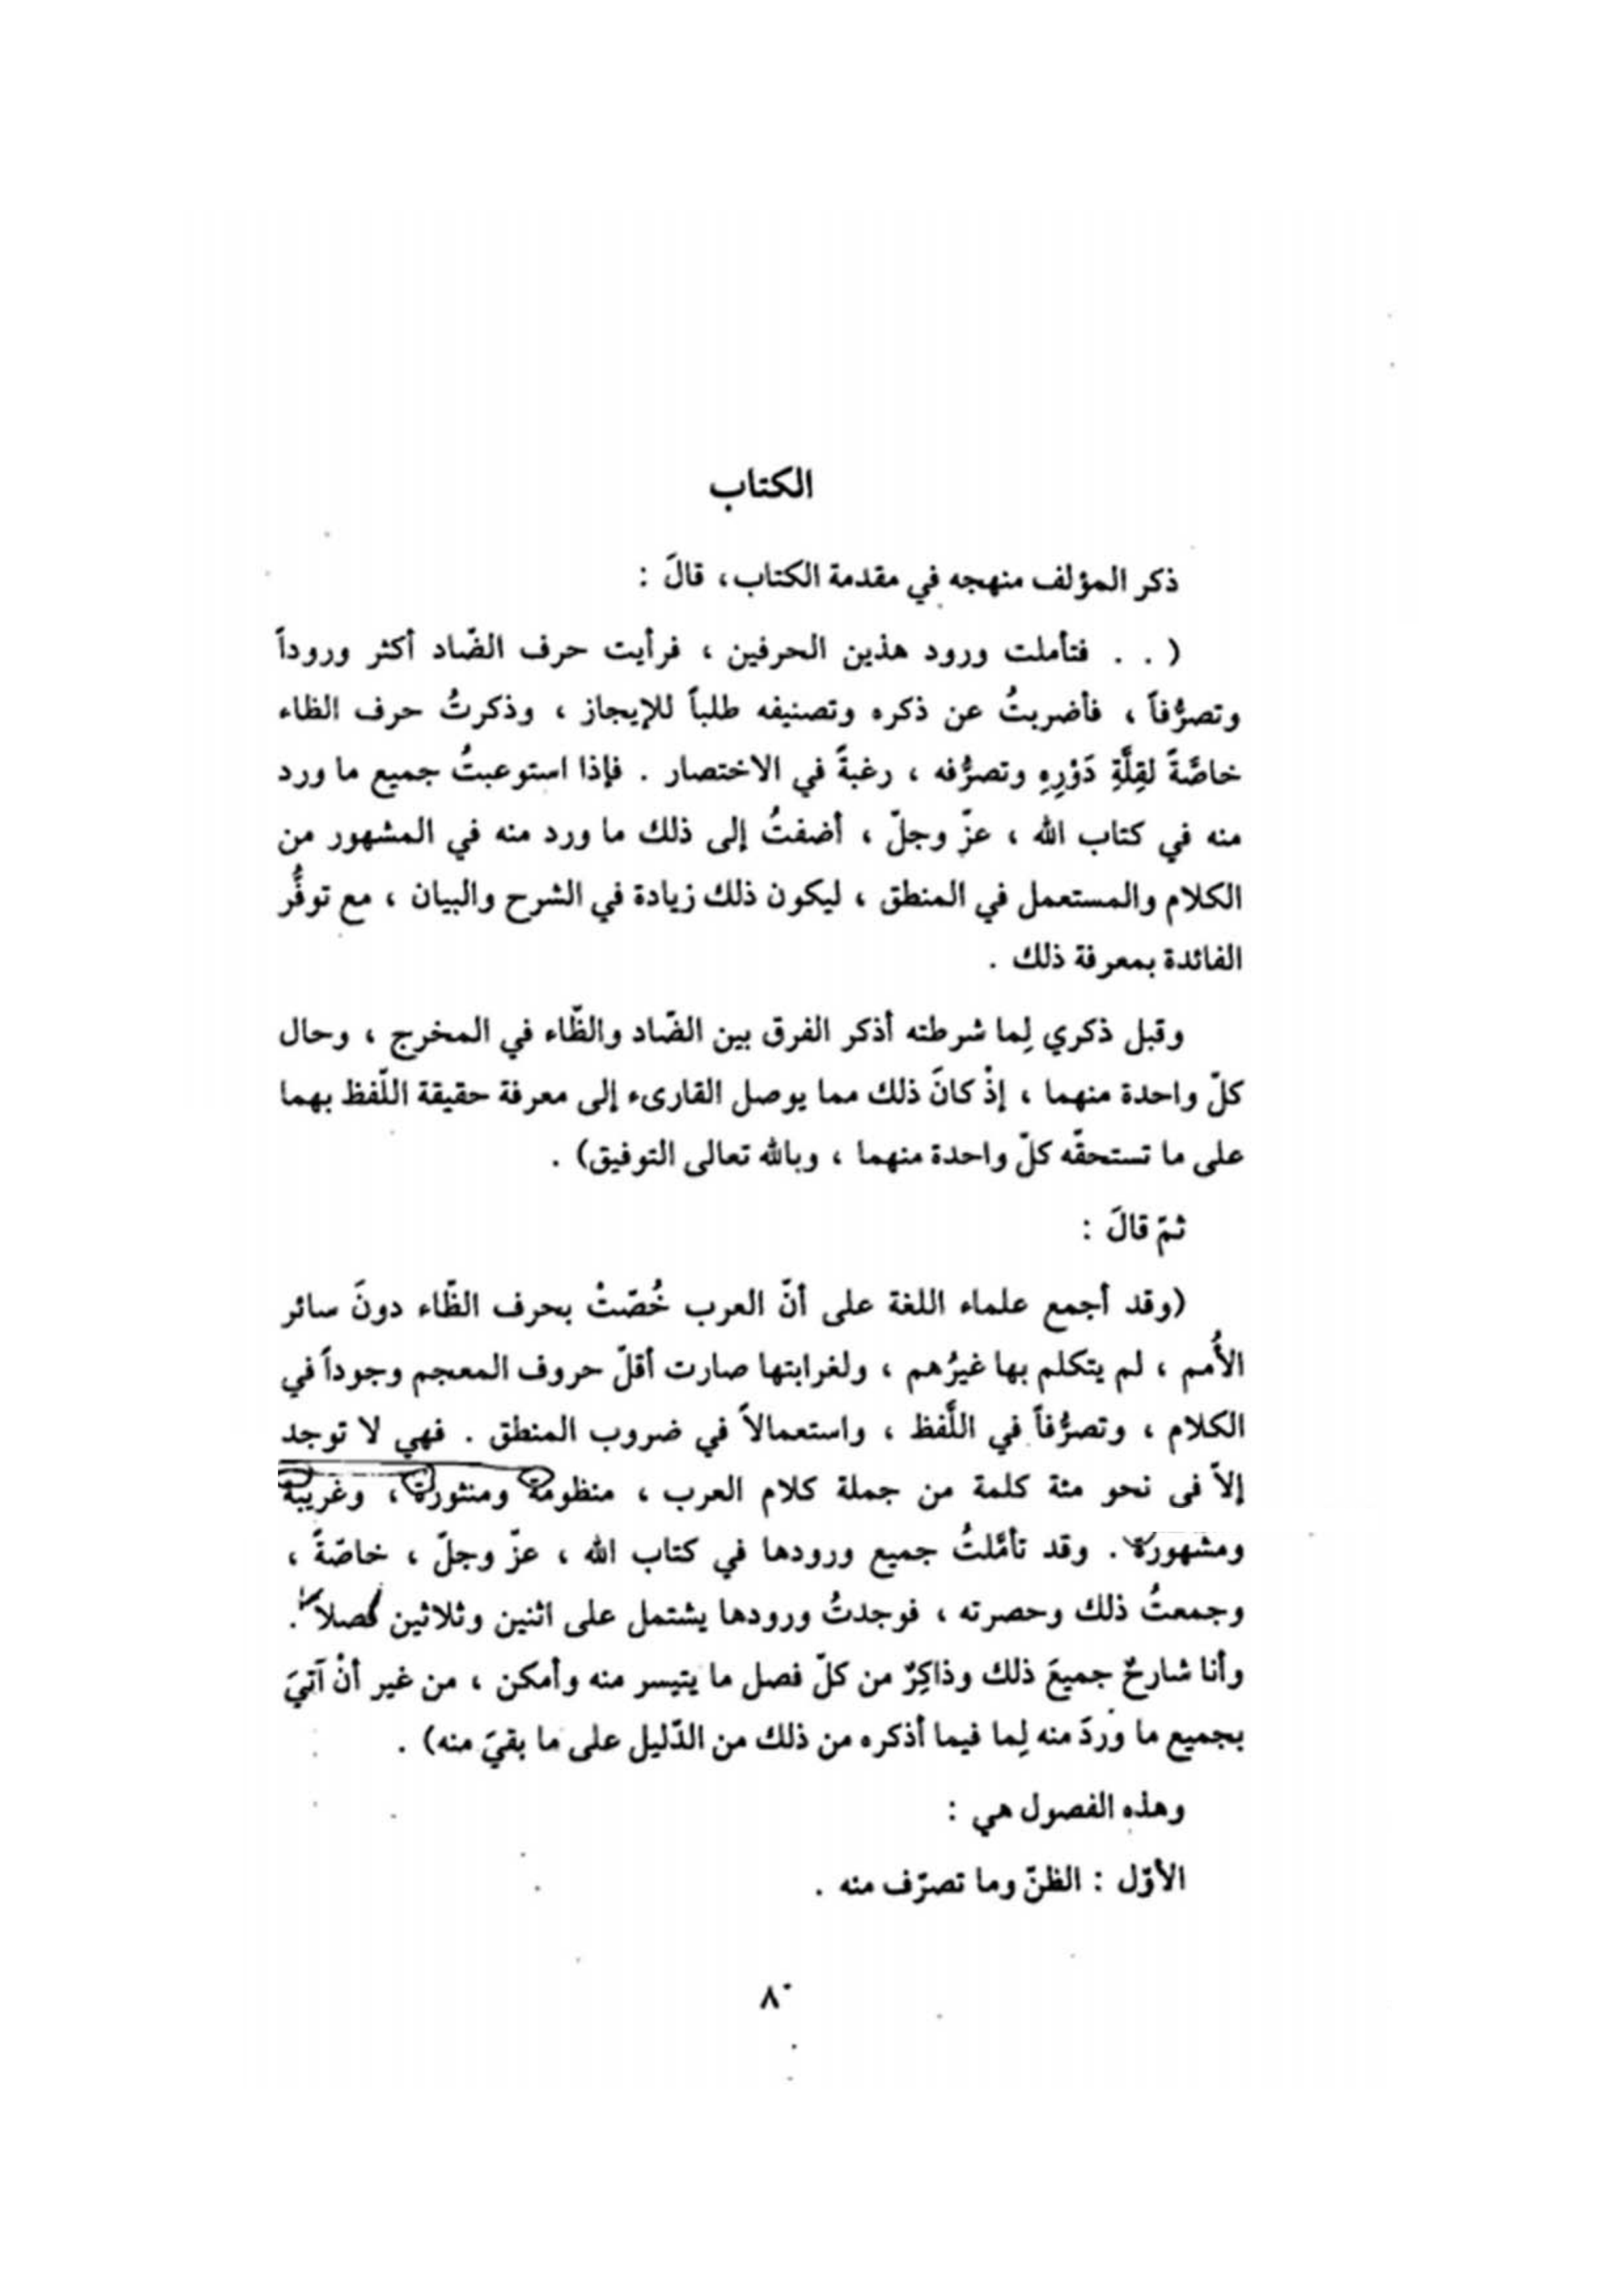 الكتاب
ذكر المؤلف منهجه في مقدمة الكتاب، قالَ :
( . . فتأملت ورود هذين الحرفين ، فرأيت حرف الضّاد أكثر وروداً
وتصرُّفاً ، فأضربتُ عن ذكره وتصنيفه طلباً للإيجاز ، وذكرتُ حرف الظاء
خاصَّةً لقِلَّةِ دَوْرِهِ وتصرُّفه ، رغبةً في الاختصار . فإذا استوعبتُ جميع ما ورد
منه في كتاب الله ، عزّ وجلّ ، أضفتُ إلى ذلك ما ورد منه في المشهور من
الكلام والمستعمل في المنطق ، ليكون ذلك زيادة في الشرح والبيان ، مع توفُّر
الفائدة بمعرفة ذلك .
وقبل ذكري لِما شرطته أذكر الفرق بين الضّاد والظّاء في المخرج ، وحال
كلّ واحدة منهما ، إذْ كانَ ذلك مما يوصل القارىء إلى معرفة حقيقة اللّفظ بهما
على ما تستحقّه كلّ واحدة منهما ، وبالله تعالى التوفيق) .
ثمّ قالَ :
(وقد أجمع علماء اللغة على أنّ العرب خُصّتْ بحرف الظّاء دونَ سائر
الأُمم ، لم يتكلم بها غيرُهم ، ولغرابتها صارت أقلّ حروف المعجم وجوداً في
الكلام ، وتصرُّفاً في اللَّفظ ، واستعمالاً في ضروب المنطق . فهي لا توجد
إلاّ فى نحو مئة كلمة من جملة كلام العرب ، منظومة ومنثورة ، وغريبة
ومشهورة . وقد تأمَّلتُ جميع ورودها في كتاب الله ، عزّ وجلّ ، خاصّةً ،
وجمعتُ ذلك وحصرته ، فوجدتُ ورودها يشتمل على اثنين وثلاثين فصلاً .
وأنا شارحٌ جميعَ ذلك وذاكِرٌ من كلّ فصل ما يتيسر منه وأمكن ، من غير أنْ آتيَ
بجميع ما وردَ منه لِما فيما أذكره من ذلك من الدّليل على ما بقيَ منه) .
وهذه الفصول هي :
الأوّل : الظنّ وما تصرّف منه .
٨